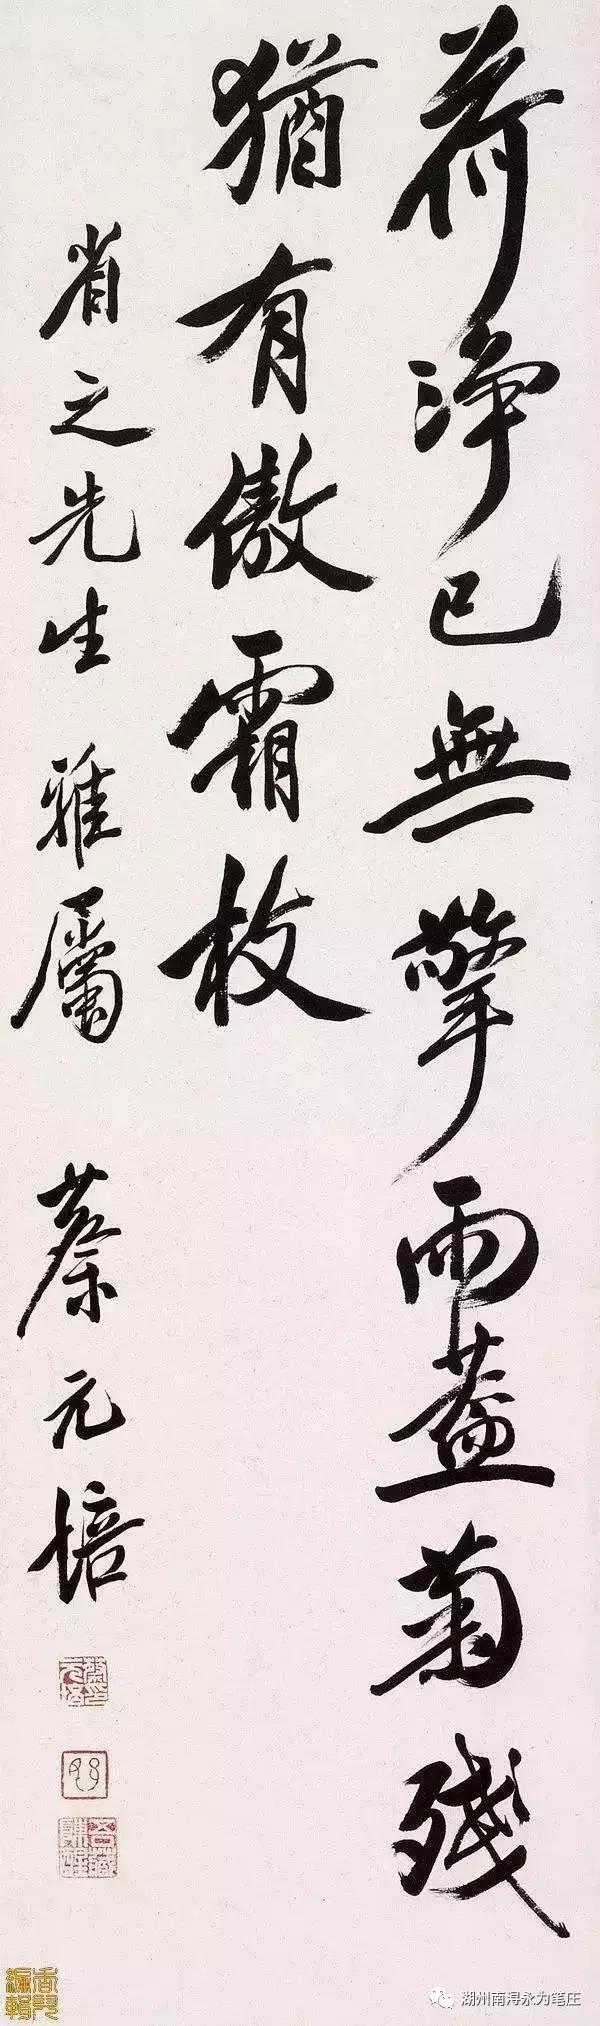 荷净已無擎雨蓋菊殘
猶有傲霜枝
省之先生 雅屬 蔡元培
湖州南浔永为笔庄